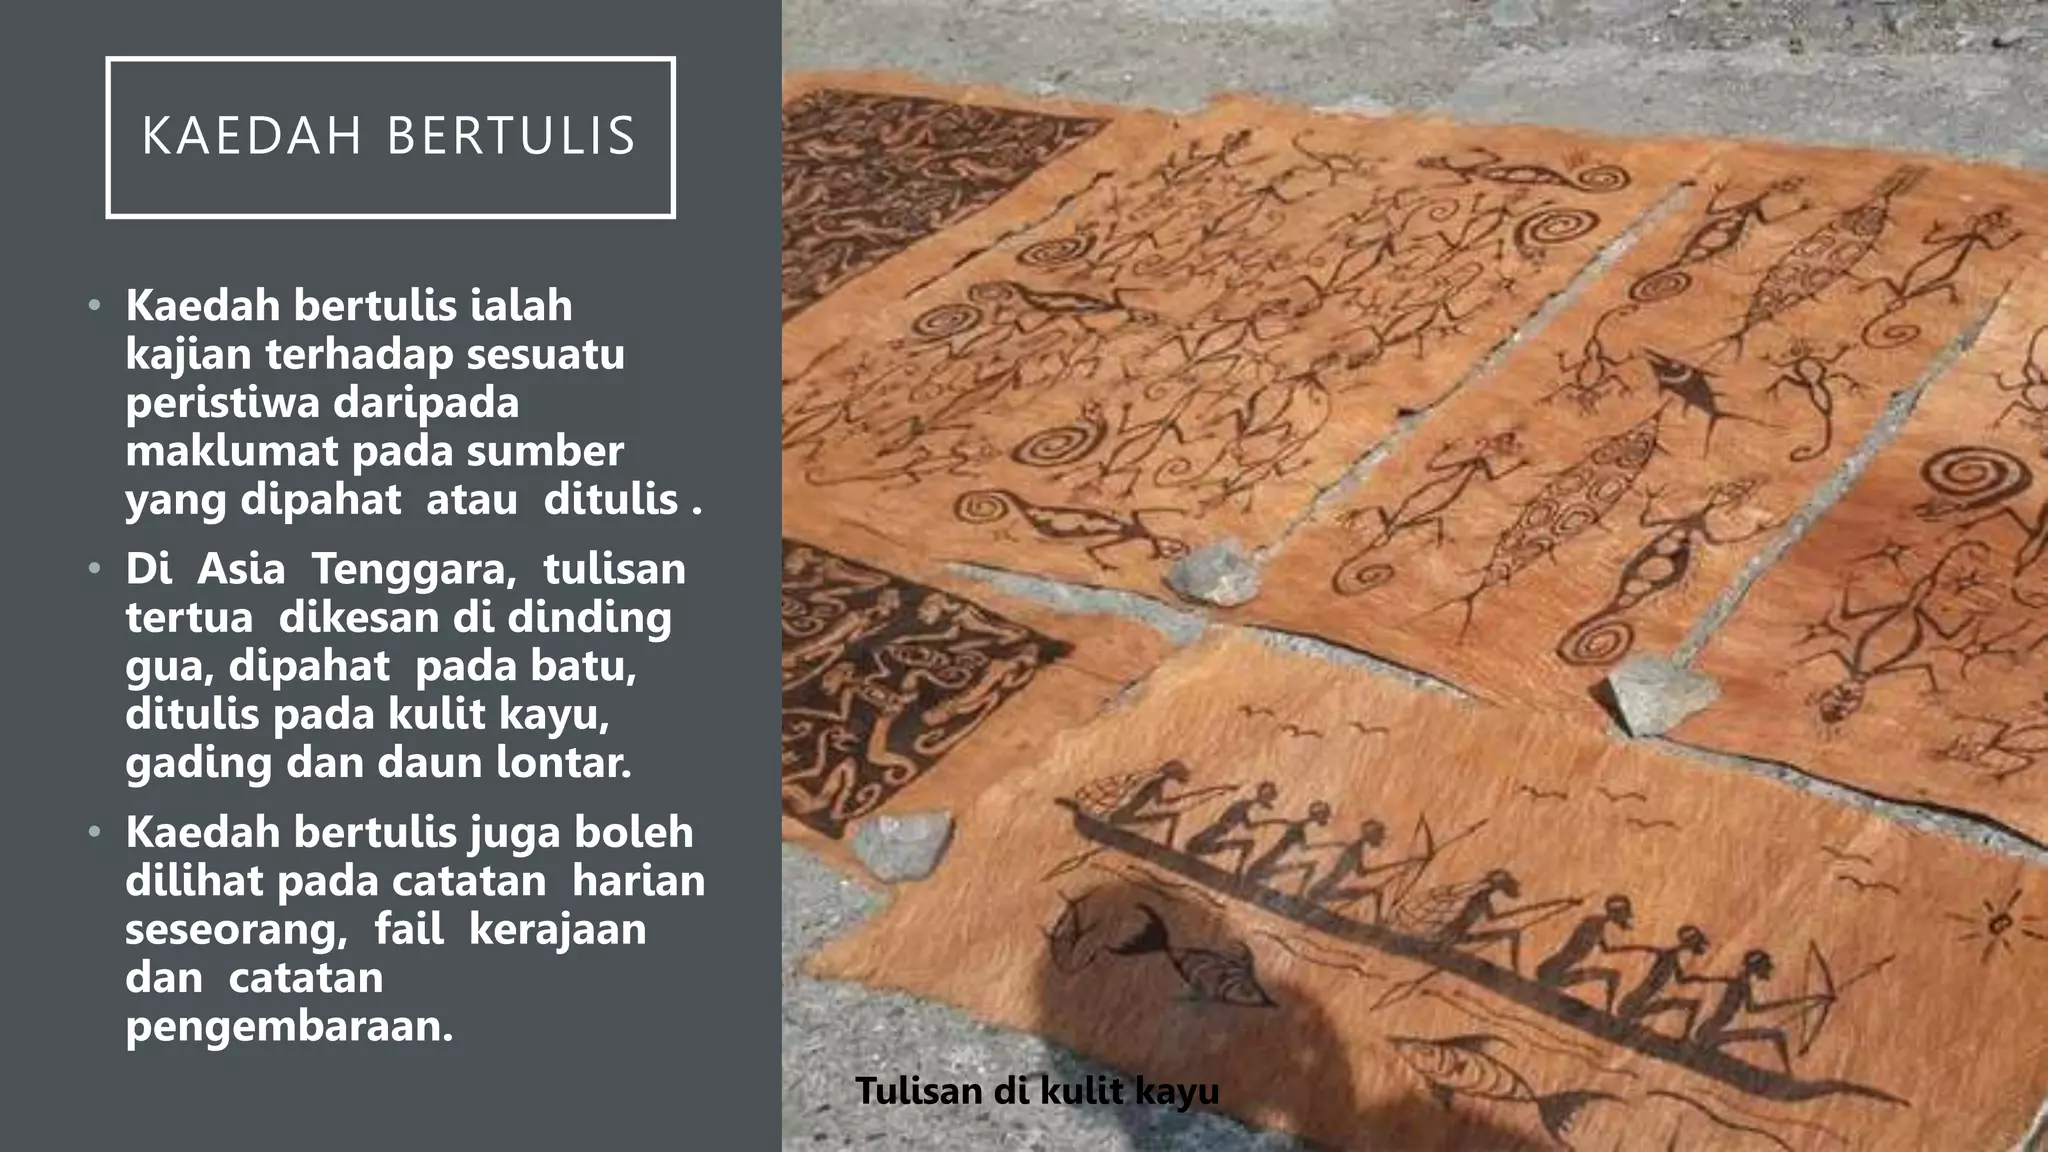 KAEDAH BERTULIS
• Kaedah bertulis ialah
kajian terhadap sesuatu
peristiwa daripada
maklumat pada sumber
yang dipahat atau ditulis .
• Di Asia Tenggara, tulisan
tertua dikesan di dinding
gua, dipahat pada batu,
ditulis pada kulit kayu,
gading dan daun lontar.
• Kaedah bertulis juga boleh
dilihat pada catatan harian
seseorang, fail kerajaan
dan catatan
pengembaraan.
Tulisan di kulit kayu